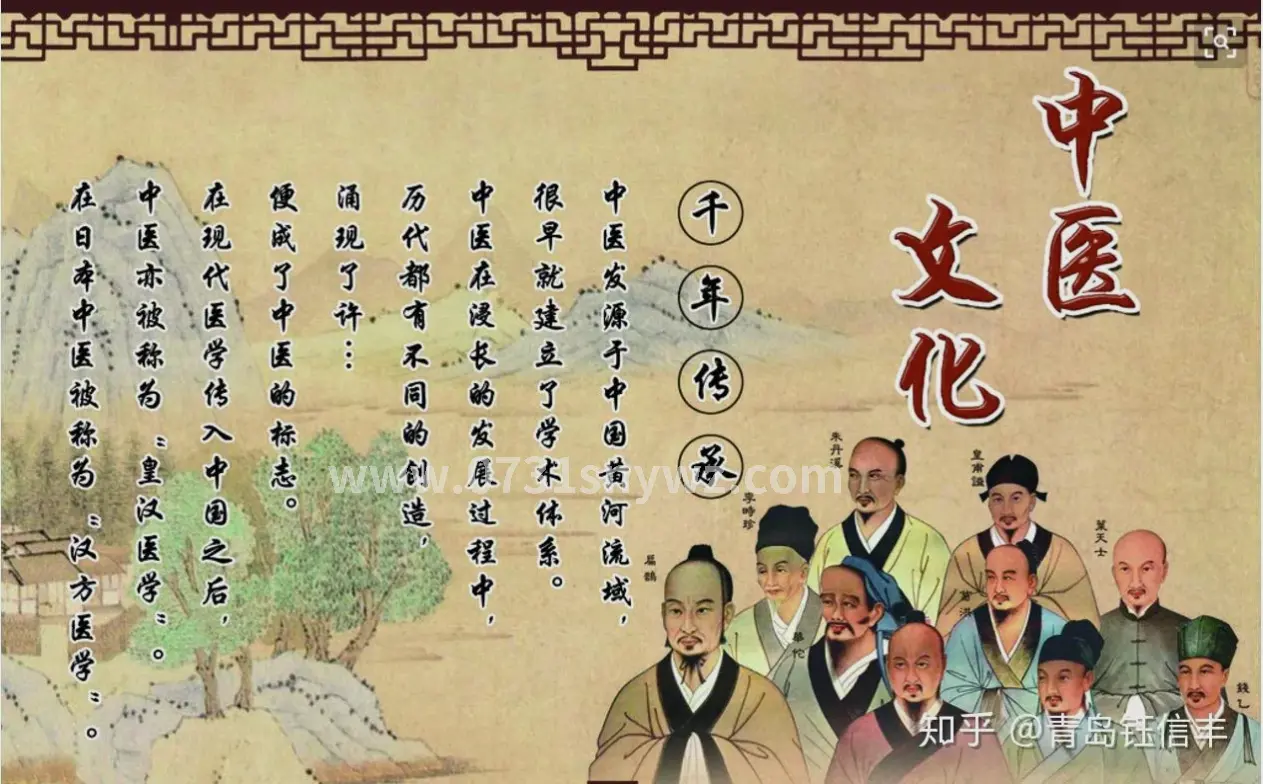 中医
文化
千年传承
中医发源于中国黄河流域,
很早就建立了学术体系。
中医在浸长的发展过程中,
历代都有不同的创造,
涌现了许…
便成了中医的标志。
在现代医学传入中国之后,
中医亦被称为“皇汉医学”。
在日本中医被称为“汉方医学”。
朱丹溪
皇甫謐
李時珍
葉天士
扁鵲
葛洪
華佗
錢乙
知乎 @青岛钰信丰